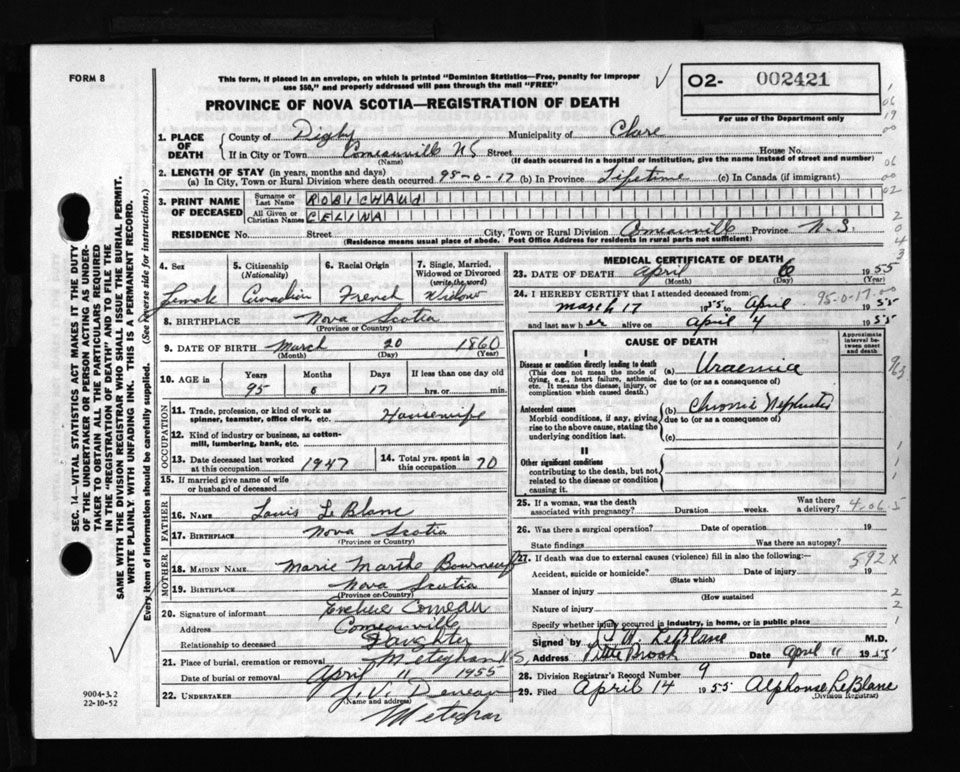 FORM 8
This form, if placed in an envelope, on which is printed "Dominion Statistics—Free, penalty for improper
use $50," and properly addressed will pass through the mail "FREE"
O2- 002421
For use of the Department only
PROVINCE OF NOVA SCOTIA—REGISTRATION OF DEATH
1. PLACE OF DEATH County of Digby Municipality of Clare
If in City or Town Comeauville NS Street House No.
(Name) (If death occurred in a hospital or institution, give the name instead of street and number)
2. LENGTH OF STAY (in years, months and days)
(a) In City, Town or Rural Division where death occurred 95-0-17 (b) In Province Lifetime (c) In Canada (if immigrant)
3. PRINT NAME OF DECEASED Surname or Last Name ROBICHAUD
All Given or Christian Names CELINA
RESIDENCE No. Street City, Town or Rural Division Comeauville Province N.S.
(Residence means usual place of abode. Post Office Address for residents in rural parts not sufficient)
4. Sex Female
5. Citizenship (Nationality) Canadian
6. Racial Origin French
7. Single, Married, Widowed or Divorced (write the word) Widow
8. BIRTHPLACE Nova Scotia
(Province or Country)
9. DATE OF BIRTH March 20 1860
(Month) (Day) (Year)
10. AGE in Years Months Days If less than one day old
95 0 17 hrs. or min.
OCCUPATION
11. Trade, profession or kind of work as spinner, teamster, office clerk, etc. Housewife
12. Kind of industry or business, as cotton-mill, lumbering, bank, etc.
13. Date deceased last worked at this occupation 1947
14. Total yrs. spent in this occupation 70
15. If married give name of wife or husband of deceased
FATHER
16. NAME Louis LeBlanc
17. BIRTHPLACE Nova Scotia
(Province or Country)
MOTHER
18. MAIDEN NAME Marie Marthe Bourneuf
19. BIRTHPLACE Nova Scotia
(Province or Country)
20. Signature of informant Comeau
Address Comeauville
Relationship to deceased Daughter
21. Place of burial, cremation or removal Meteghan N.S.
Date of burial or removal April 11 1955
22. UNDERTAKER J. V. Deveau
(Name and address)
Meteghan
MEDICAL CERTIFICATE OF DEATH
23. DATE OF DEATH April 6 1955
(Month) (Day) (Year)
24. I HEREBY CERTIFY that I attended deceased from: 95-0-17
March 17 1955 to April 1955
and last saw her alive on April 4 1955
CAUSE OF DEATH
Approximate interval between onset and death
I
Disease or condition directly leading to death
(This does not mean the mode of dying, e.g., heart failure, asthenia, etc. It means the disease, injury, or complication which caused death.)
(a) Uraemia
due to (or as a consequence of)
Antecedent causes
Morbid conditions, if any, giving rise to the above cause, stating the underlying condition last.
(b) Chronic Nephritis
due to (or as a consequence of)
(c)
II
Other significant conditions
contributing to the death, but not related to the disease or condition causing it.
25. If a woman, was the death associated with pregnancy? Duration weeks. Was there a delivery?
26. Was there a surgical operation? Date of operation 19
State findings Was there an autopsy?
27. If death was due to external causes (violence) fill in also the following:— 592 x
Accident, suicide or homicide? Date of injury 19
(State which)
Manner of injury
(How sustained)
Nature of injury
Specify whether injury occurred in industry, in home, or in public place
Signed by LeBlanc M.D.
Address Little Brook Date April 11 1955
28. Division Registrar's Record Number 9
29. Filed April 14 1955 Alphonse LeBlanc
(Division Registrar)
SEC. 14—VITAL STATISTICS ACT MAKES IT THE DUTY
OF THE UNDERTAKER OR PERSON ACTING AS UNDER-
TAKER TO OBTAIN ALL THE PARTICULARS REQUIRED
IN THE "REGISTRATION OF DEATH" AND TO FILE THE
SAME WITH THE DIVISION REGISTRAR WHO SHALL ISSUE THE BURIAL PERMIT.
WRITE PLAINLY WITH UNFADING INK. THIS IS A PERMANENT RECORD.
Every item of information should be carefully supplied. (See reverse side for instructions.)
9004-3.2
22-10-52